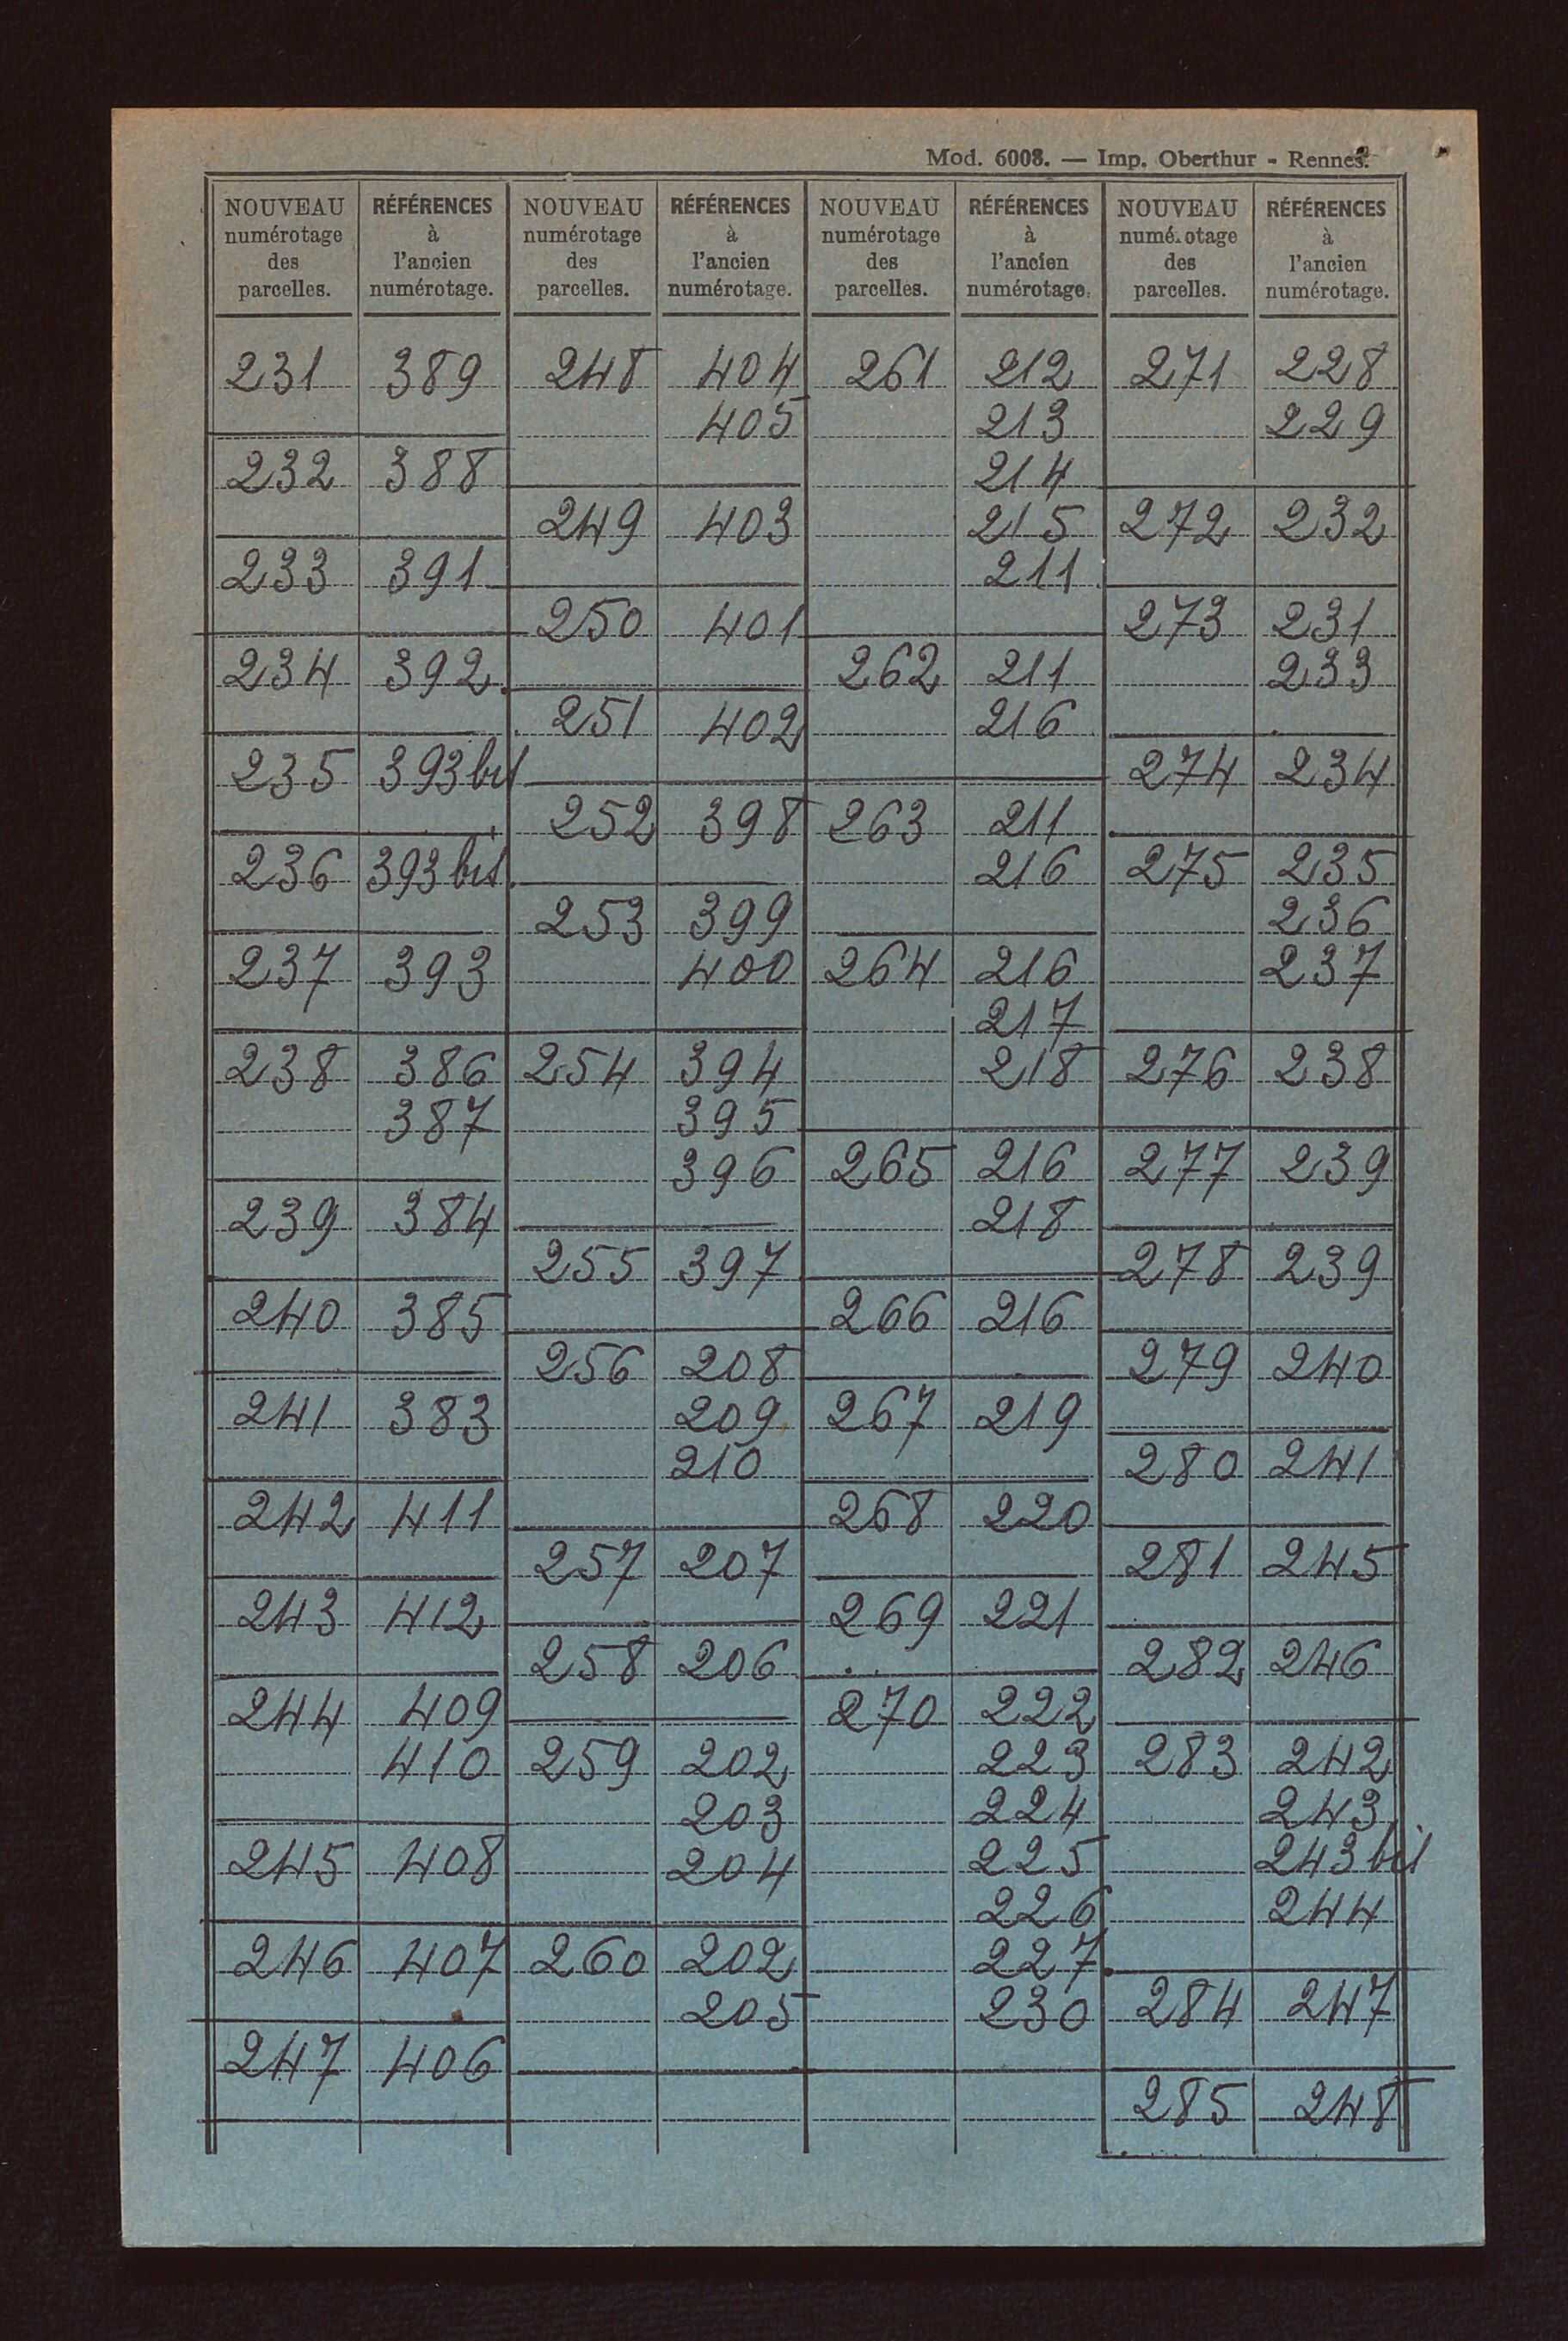 Mod. 6008. — Imp. Oberthur - Rennes.
NOUVEAU numérotage des parcelles. | RÉFÉRENCES à l'ancien numérotage. | NOUVEAU numérotage des parcelles. | RÉFÉRENCES à l'ancien numérotage. | NOUVEAU numérotage des parcelles. | RÉFÉRENCES à l'ancien numérotage. | NOUVEAU numé.otage des parcelles. | RÉFÉRENCES à l'ancien numérotage.
231 389
232 388
233 391
234 392
235 393 bis
236 393 bis
237 393
238 386
387
239 384
240 385
241 383
242 411
243 412
244 409
410
245 408
246 407
247 406
248 404
405
249 403
250 401
251 402
252 398
253 399
400
254 394
395
396
255 397
256 208
209
210
257 207
258 206
259 202
203
204
260 202
205
261 212
213
214
215
211
262 211
216
263 211
216
264 216
217
218
265 216
218
266 216
267 219
268 220
269 221
270 222
223
224
225
226
227
230
271 228
229
272 232
273 231
233
274 234
275 235
236
237
276 238
277 239
278 239
279 240
280 241
281 245
282 246
283 242
243
243 bis
244
284 247
285 248